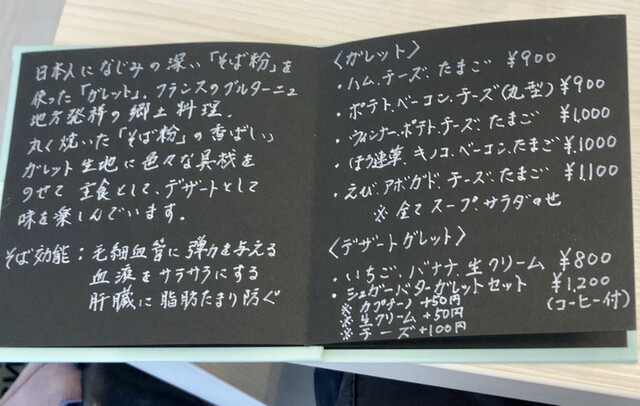 日本人になじみの深い「そば粉」を
使った「ガレット」、フランスのブルターニュ
地方発祥の郷土料理.
丸く焼いた「そば粉」の香ばしい
ガレット生地に色々な具材を
のせて主食として、デザートとして
味を楽しんでいます。
そば効能：毛細血管に弾力を与える
血液をサラサラにする
肝臓に脂肪たまり防ぐ
〈ガレット〉
・ハム、チーズ、たまご ¥900
・ポテト、ベーコン、チーズ(丸型) ¥900
・ウィンナー、ポテト、チーズ、たまご ¥1,000
・ほう連草、キノコ、ベーコン、たまご ¥1,000
・えび、アボガド、チーズ、たまご ¥1,100
※全てスープサラダのせ
〈デザートガレット〉
・いちご、バナナ、生クリーム ¥800
・シュガーバターガレットセット ¥1,200
(コーヒー付)
※カプチーノ +50円
※生クリーム +50円
※チーズ +100円